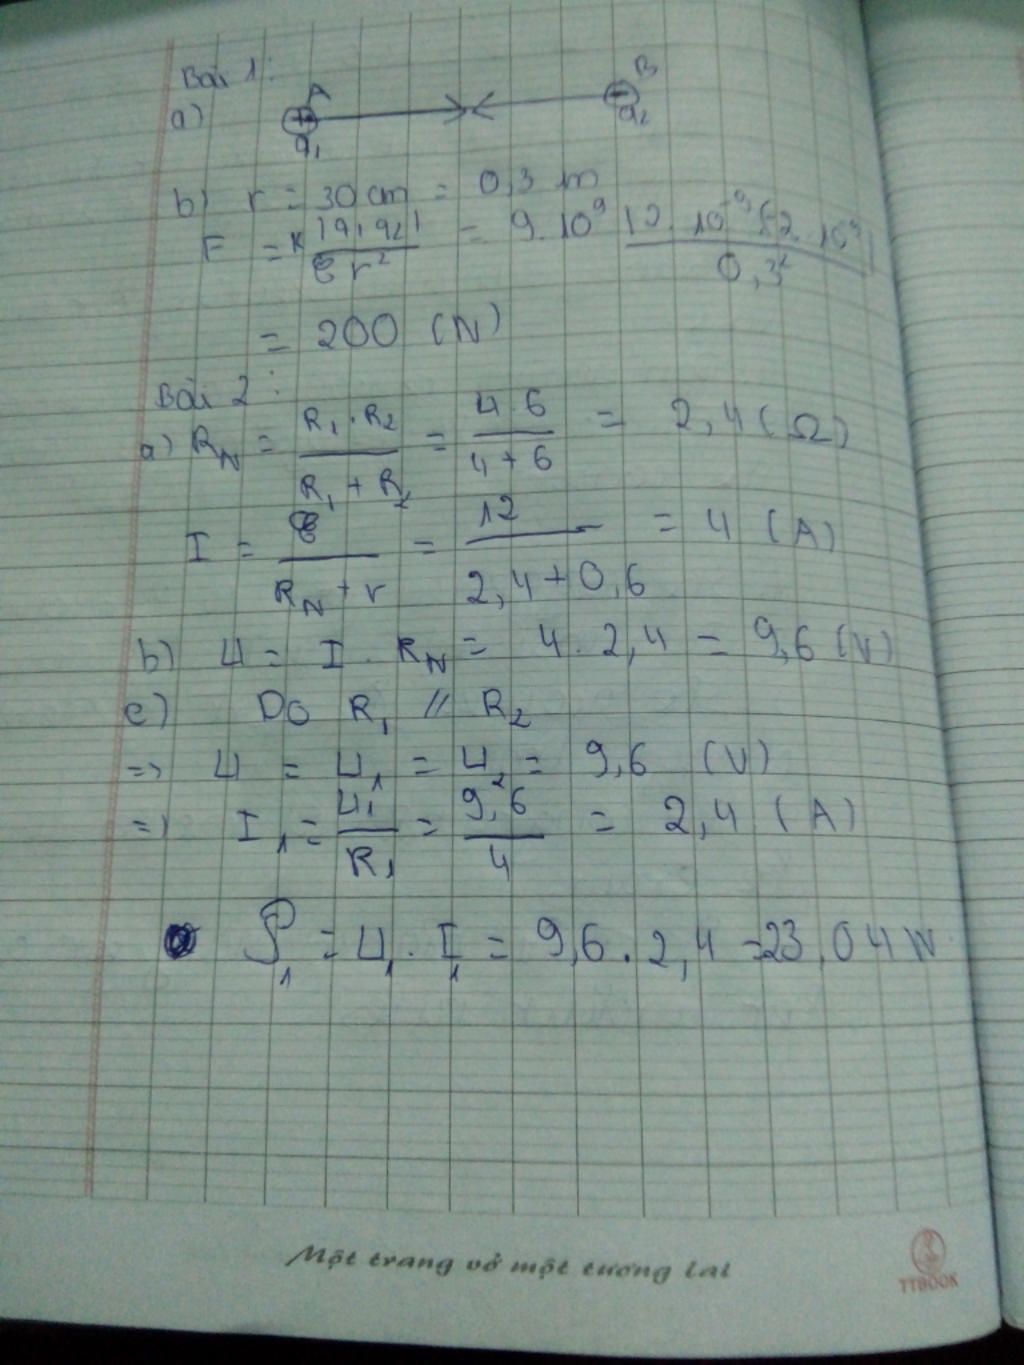 Bài 1:
a) A B
q₁ q₂
b) r = 30 cm = 0,3 m
F = K |q₁q₂| / εr² = 9.10⁹ |2.10⁻⁹.(-2.10⁹)| / 0,3²
= 200 (N)
Bài 2:
a) R_N = R₁.R₂ / R₁ + R₂ = 4.6 / 4 + 6 = 2,4 (Ω)
I = ℰ / R_N + r = 12 / 2,4 + 0,6 = 4 (A)
b) U = I . R_N = 4 . 2,4 = 9,6 (V)
c) Do R₁ // R₂
=> U = U₁ = U₂ = 9,6 (V)
=> I₁ = U₁ / R₁ = 9,6 / 4 = 2,4 (A)
P₁ = U₁ . I₁ = 9,6 . 2,4 = 23,04 W
Một trang vở một tương lai
TTBOOK